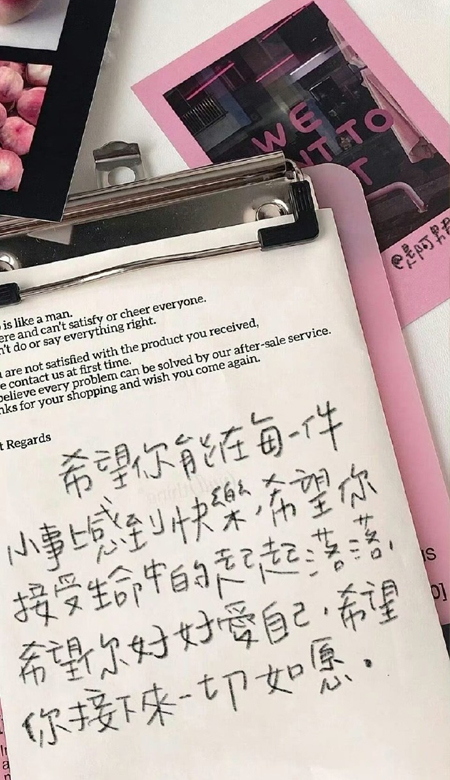 WE
TO
T
is like a man.
ere and can't satisfy or cheer everyone.
n't do or say everything right.
are not satisfied with the product you received,
e contact us at first time.
believe every problem can be solved by our after-sale service.
nks for your shopping and wish you come again.
t Regards
希望你能在每一件
小事上感到快樂,希望你
接受生命中的起起落落,
希望你好好愛自己,希望
你接下來一切如愿.